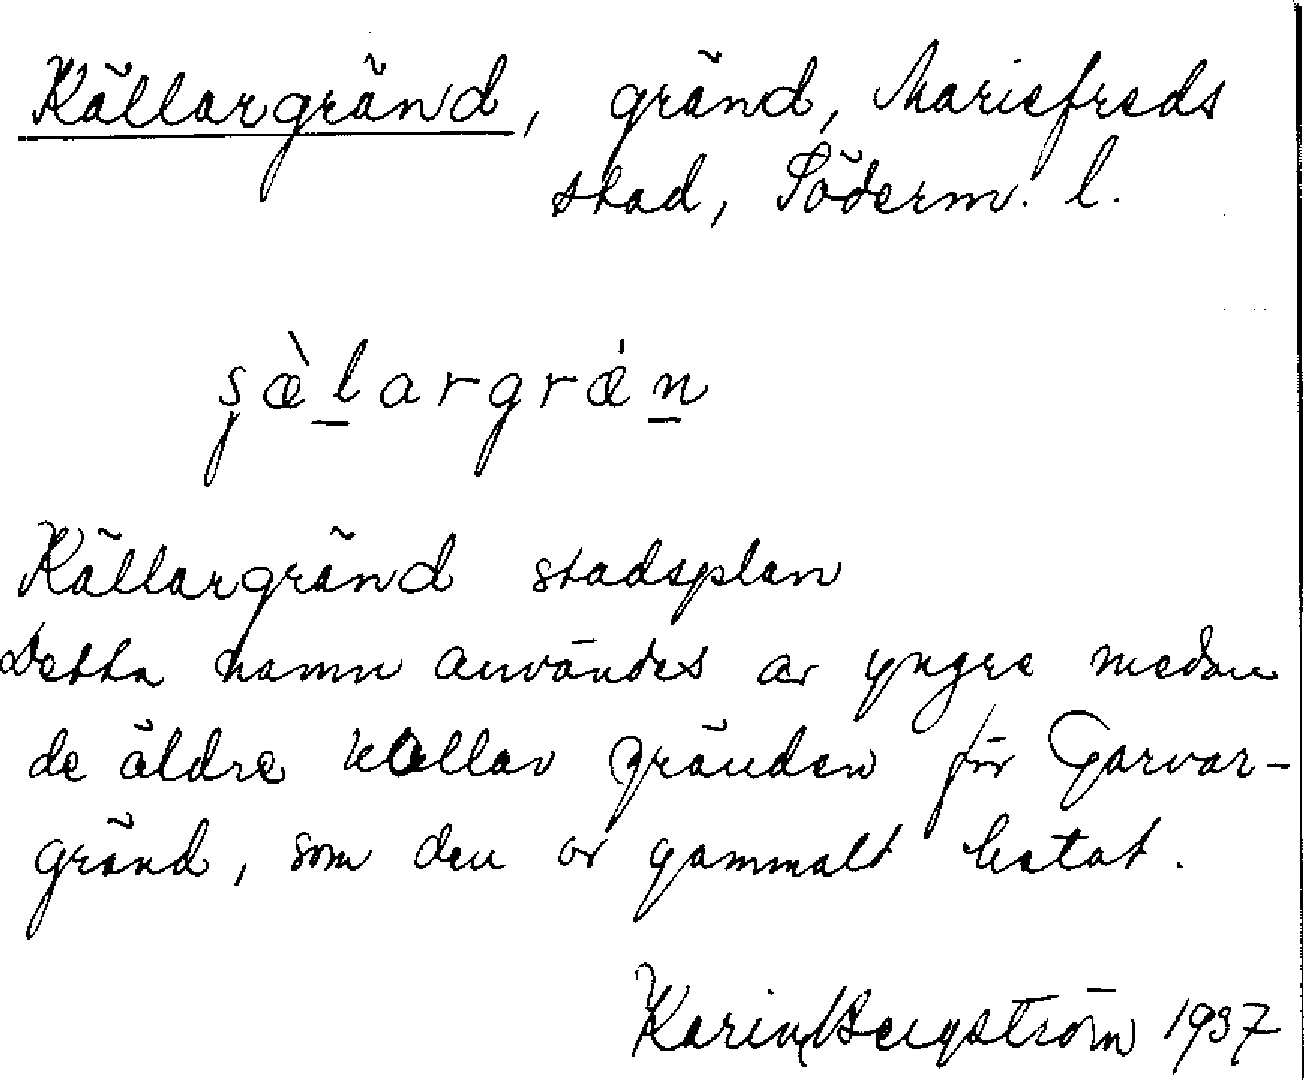 Källargränd, gränd, Mariefreds
stad, Söderm. l.
ʂæ̀l̲argrǽn̲
Källargränd stadsplan
Detta namn användes av yngre medan
de äldre kallar gränden för Garvar-
gränd, som den av gammalt hetat.
Karin Bergström 1937